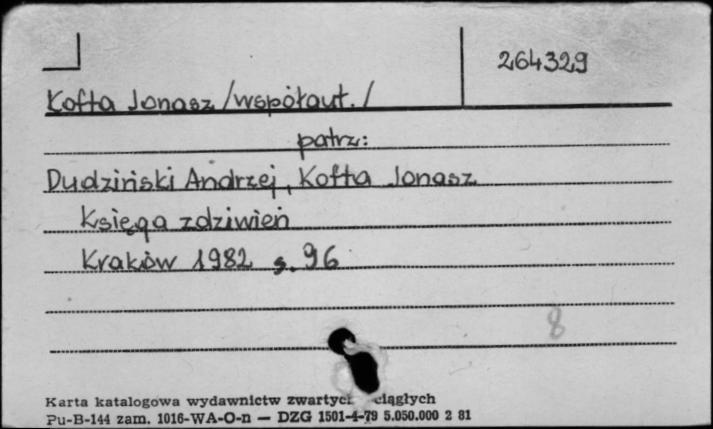 264329
Kofta Jonasz /współaut./
patrz:
Dudziński Andrzej, Kofta Jonasz
Księga zdziwień
Kraków 1982 s. 96
8
Karta katalogowa wydawnictw
Pu-B-144 zam. 1016-WA-O-n — DZG 1501-4-79 5.050.000 2 81